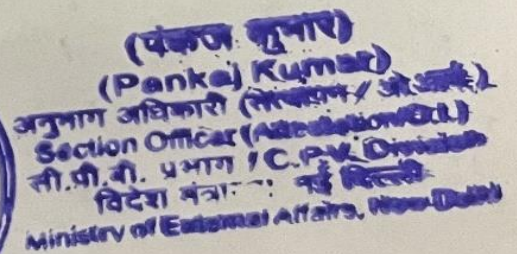 (पंकज कुमार)
(Pankaj Kumar)
अनुभाग अधिकारी
Section Officer (Attestation/O.I.)
सी.पी.वी. प्रभाग / C.P.V. Division
विदेश मंत्रा नई दिल्ली
Ministry of External Affairs, New Delhi